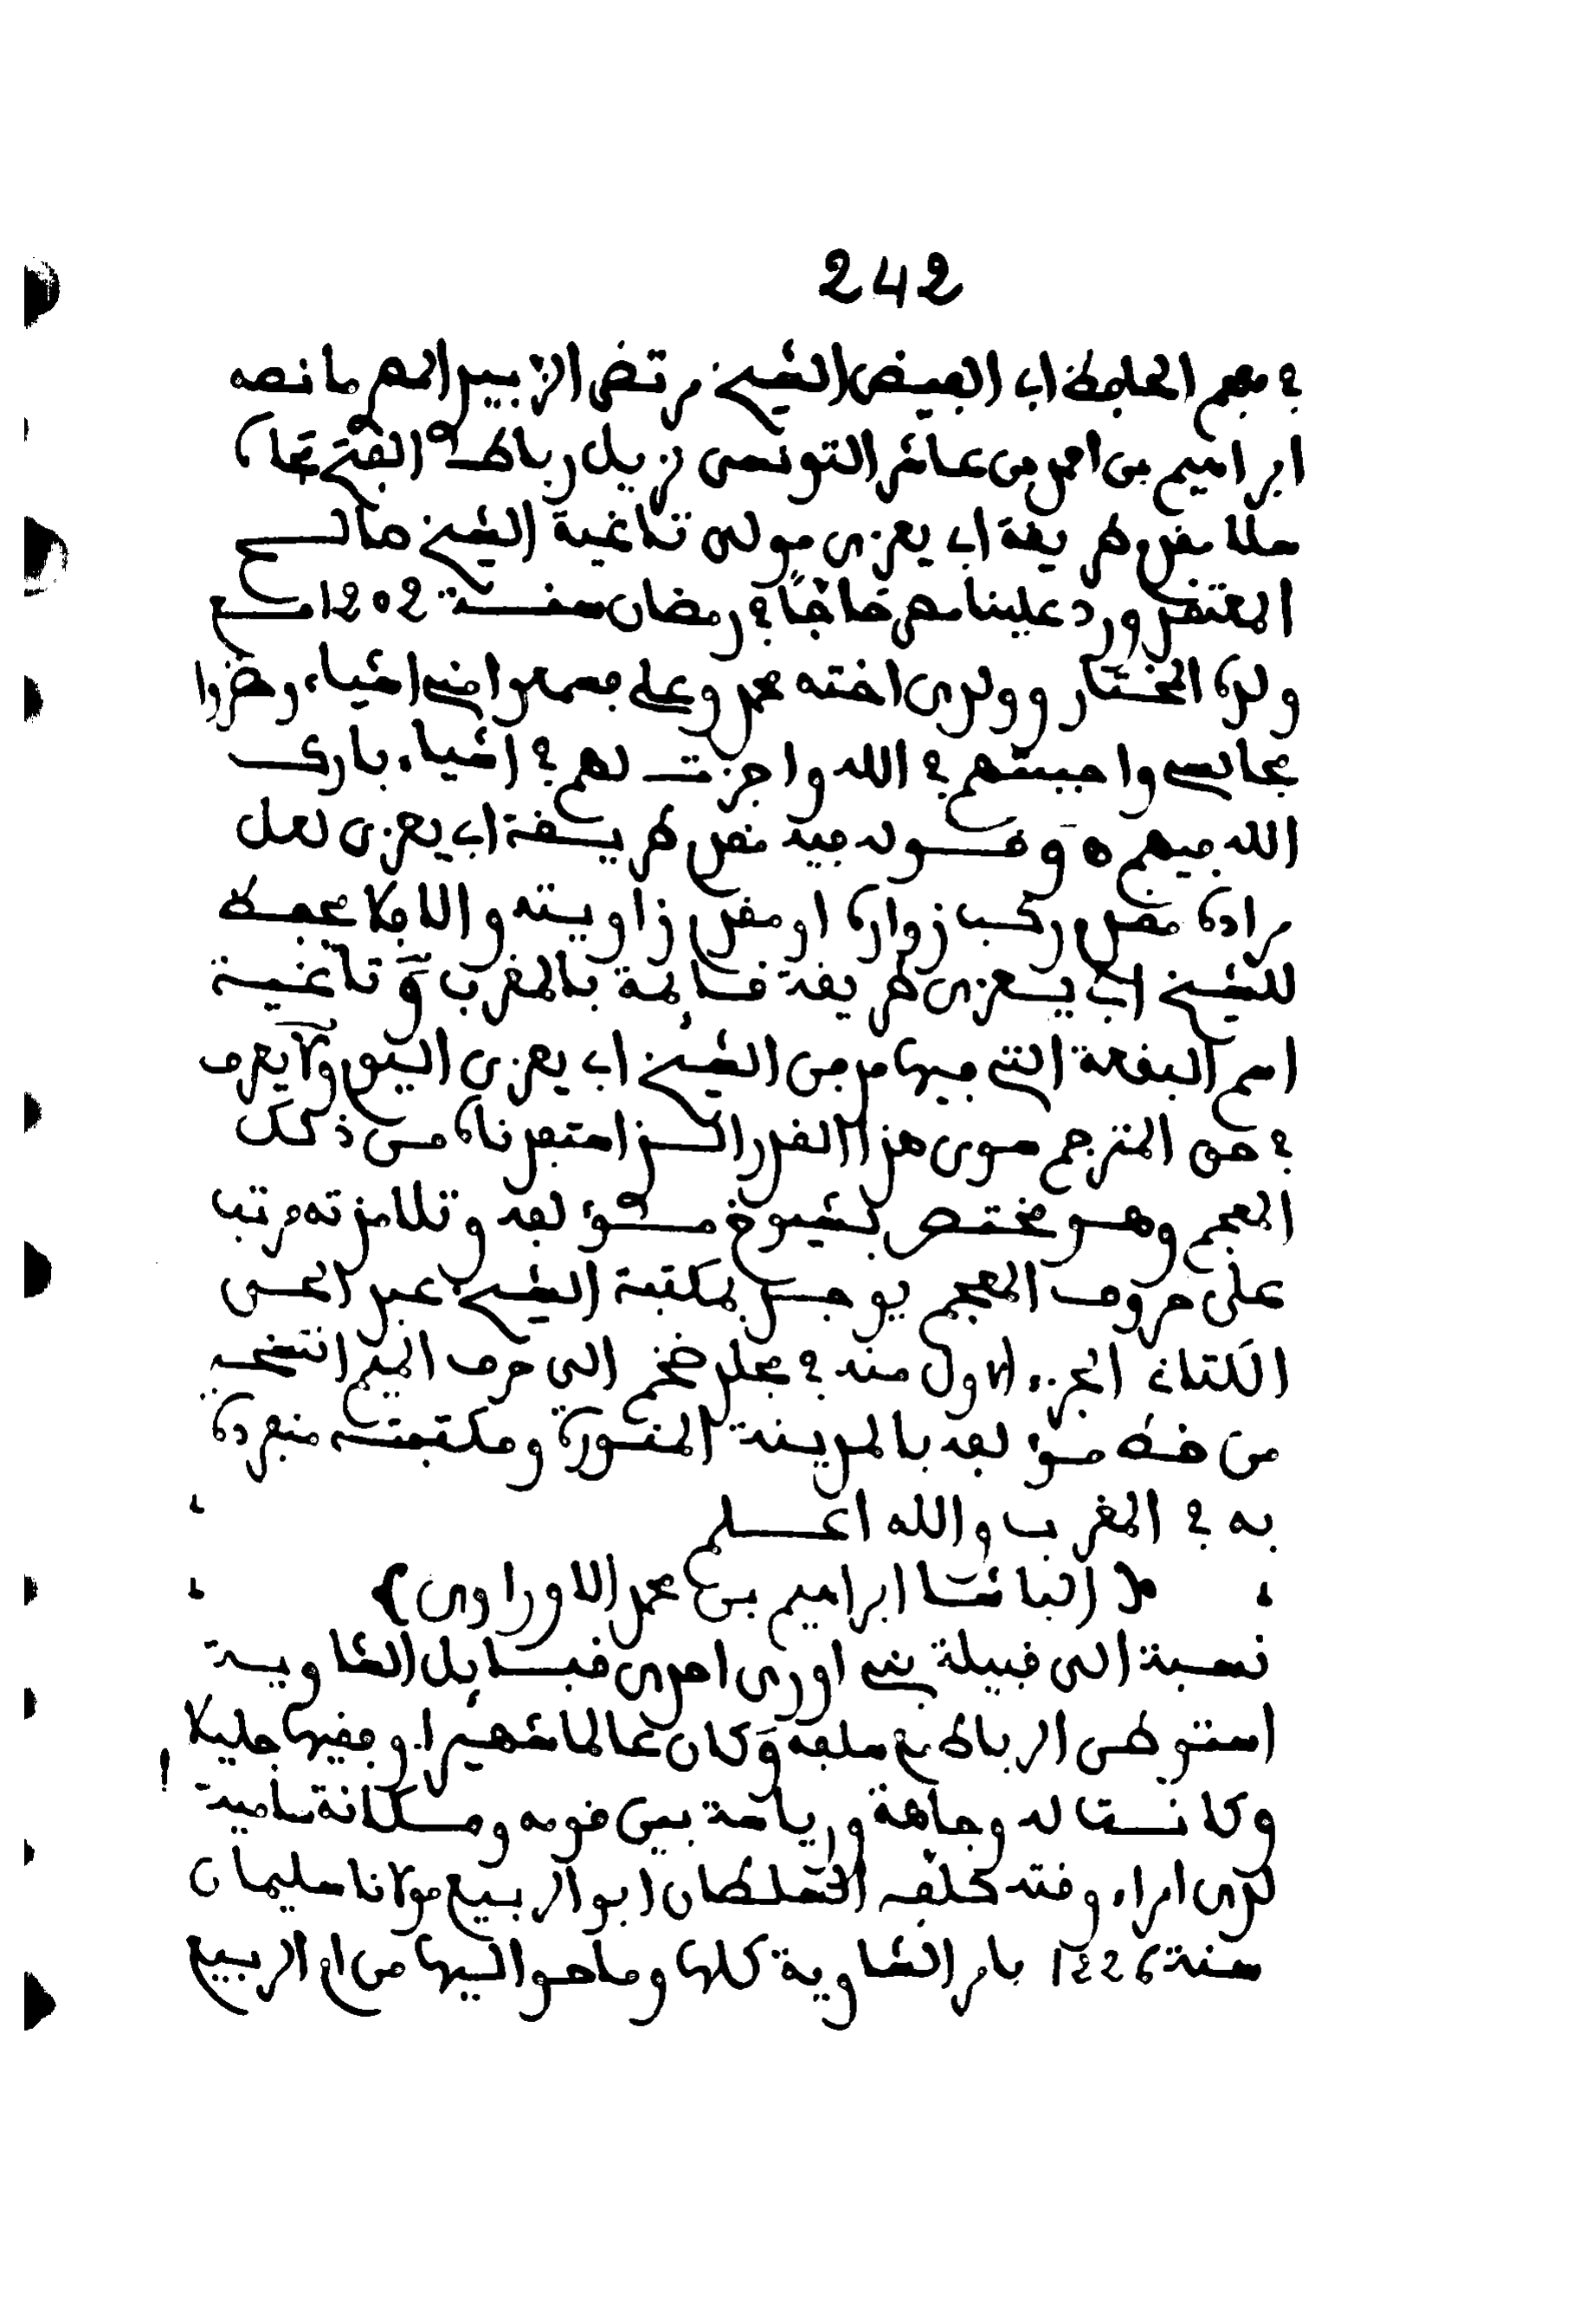 242
في معجم الحافظ ابي الفيض الشيخ مرتضى الزبيدي المصري ما نصه
ابراهيم بن احمد بن عاشر التونسي نزيل رباط الفتح
سلا مقدم طريقة ابي يعزى مولى تاغية الشيخ صالح
المعتقد ورد علينا مصر حاجا في رمضان سنة 1202 مع
ولده المختار وولدي اخته محمد وعلي فسمعوا مني اشياء وحضروا
مجالسي واحببتهم في الله واجزت لهم في اشياء بارك
الله فيهم ه وقوله فيه مقدم طريقة ابي يعزى لعل
مراده مقدم ركب زواره او مقدم زاويته والا فلا نحفظ
للشيخ ابي يعزى طريقة قائمة بالمغرب وتاغية
اسم البقعة التي فيها مدفن الشيخ ابي يعزى اليوم ولا يعرف
في حق المترجم سوى هذا القدر الذي استفدناه من ذلك
المعجم وهو مختص بشيوخ مؤلفه وتلامذته مرتب
على حروف المعجم يوجد بمكتبة الشيخ عبد الحي
الكتاني الجزء الاول منه في مجلد ضخم الى حرف الميم انتسخه
من خط مؤلفه بالمدينة المنورة ومكتبته منفردة
به في المغرب والله اعلم
﴿ الباشا ابراهيم بن محمد الاوراوي ﴾
نسبة الى قبيلة بني اورى احدى قبائل الشاوية
استوطن الرباط مع سلفه وكان عالما شهيرا وفقيها جليلا
وكانت له وجاهة ورياسة بين قومه ومكانة سامية
لدى امراء وقته كلفه السلطان ابو الربيع مولانا سليمان
سنة 1226 بامر الشاوية كلها وما حواليها من ام الربيع